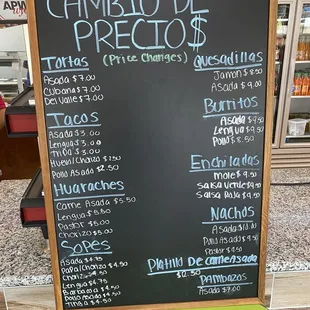 CAMBIO DE
PRECIO$
(Price Changes)
Tortas
Asada $7.00
Cubana $7.00
Del Valle $7.00
Tacos
Asada $3.00
Lengua $3.00
Tripa $3.00
Huevo/Chorizo $2.50
Pollo Asado $2.50
Huaraches
Carne Asada $5.50
Lengua $5.50
Pastor $5.00
Chorizo $5.00
Sopes
Asada $4.75
Papa/Chorizo $4.50
Chorizo $4.50
Lengua $4.75
Barbacoa $4.50
Pollo Asado $4.50
Tinga $4.50
Quesadillas
Jamon $8.50
Asada $9.50
Burritos
Asada $9.50
Lengua $9.50
Pollo $8.50
Enchiladas
Mole $9.50
Salsa Verde $9.50
Salsa Roja $9.50
Nachos
Asada $11.00
Pollo Asado $9.50
Pastor $9.50
Platillo De Carne Asada
$12.50
Pambazos
Asada $7.00